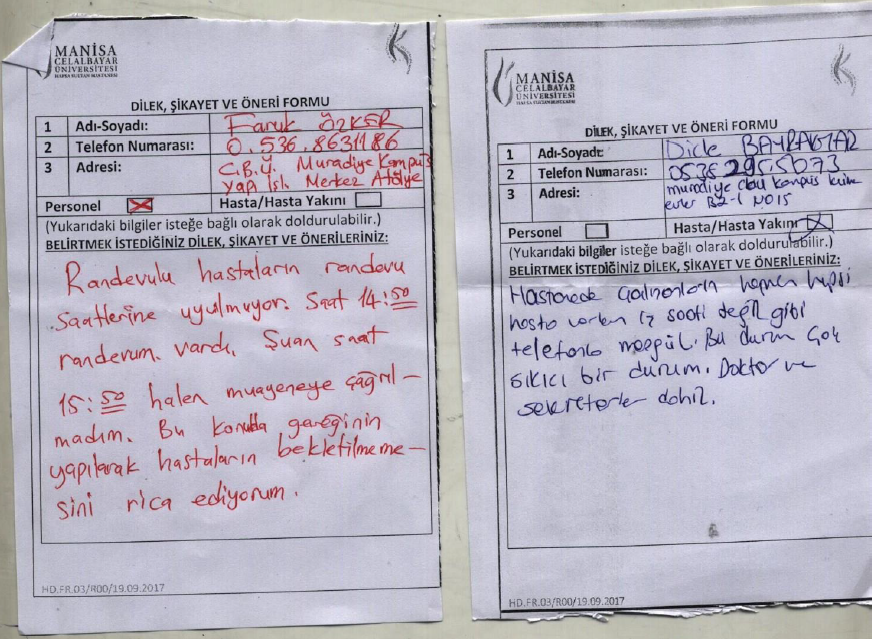 MANİSA
CELALBAYAR
ÜNİVERSİTESİ
HAFSA SULTAN HASTANESİ
DİLEK, ŞİKAYET VE ÖNERİ FORMU
1 Adı-Soyadı: Faruk ÖZKER
2 Telefon Numarası: 0.536.8631186
3 Adresi: C.B.Ü. Muradiye Kampüs
Yapı İşl. Merkez Atölye
Personel Hasta/Hasta Yakını
(Yukarıdaki bilgiler isteğe bağlı olarak doldurulabilir.)
BELİRTMEK İSTEDİĞİNİZ DİLEK, ŞİKAYET VE ÖNERİLERİNİZ:
Randevulu hastaların randevu
saatlerine uyulmuyor. Saat 14:50
randevum vardı, Şuan saat
15:50 halen muayeneye çağrıl-
madım. Bu konuda gereğinin
yapılarak hastaların bekletilmeme-
sini rica ediyorum.
HD.FR.03/R00/19.09.2017
MANİSA
CELALBAYAR
ÜNİVERSİTESİ
HAFSA SULTAN HASTANESİ
DİLEK, ŞİKAYET VE ÖNERİ FORMU
1 Adı-Soyadı: Dicle BAYRAKTAR
2 Telefon Numarası: 0535 2955073
3 Adresi: muradiye cbu kampüs
evler B2-1 NO15
Personel Hasta/Hasta Yakını
(Yukarıdaki bilgiler isteğe bağlı olarak doldurulabilir.)
BELİRTMEK İSTEDİĞİNİZ DİLEK, ŞİKAYET VE ÖNERİLERİNİZ:
Hastanede çalışanların hemen hepsi
hasta varken iş saati değil gibi
telefonla meşgul. Bu durum çok
sıkıcı bir durum. Doktor ve
sekreterler dahil.
HD.FR.03/R00/19.09.2017